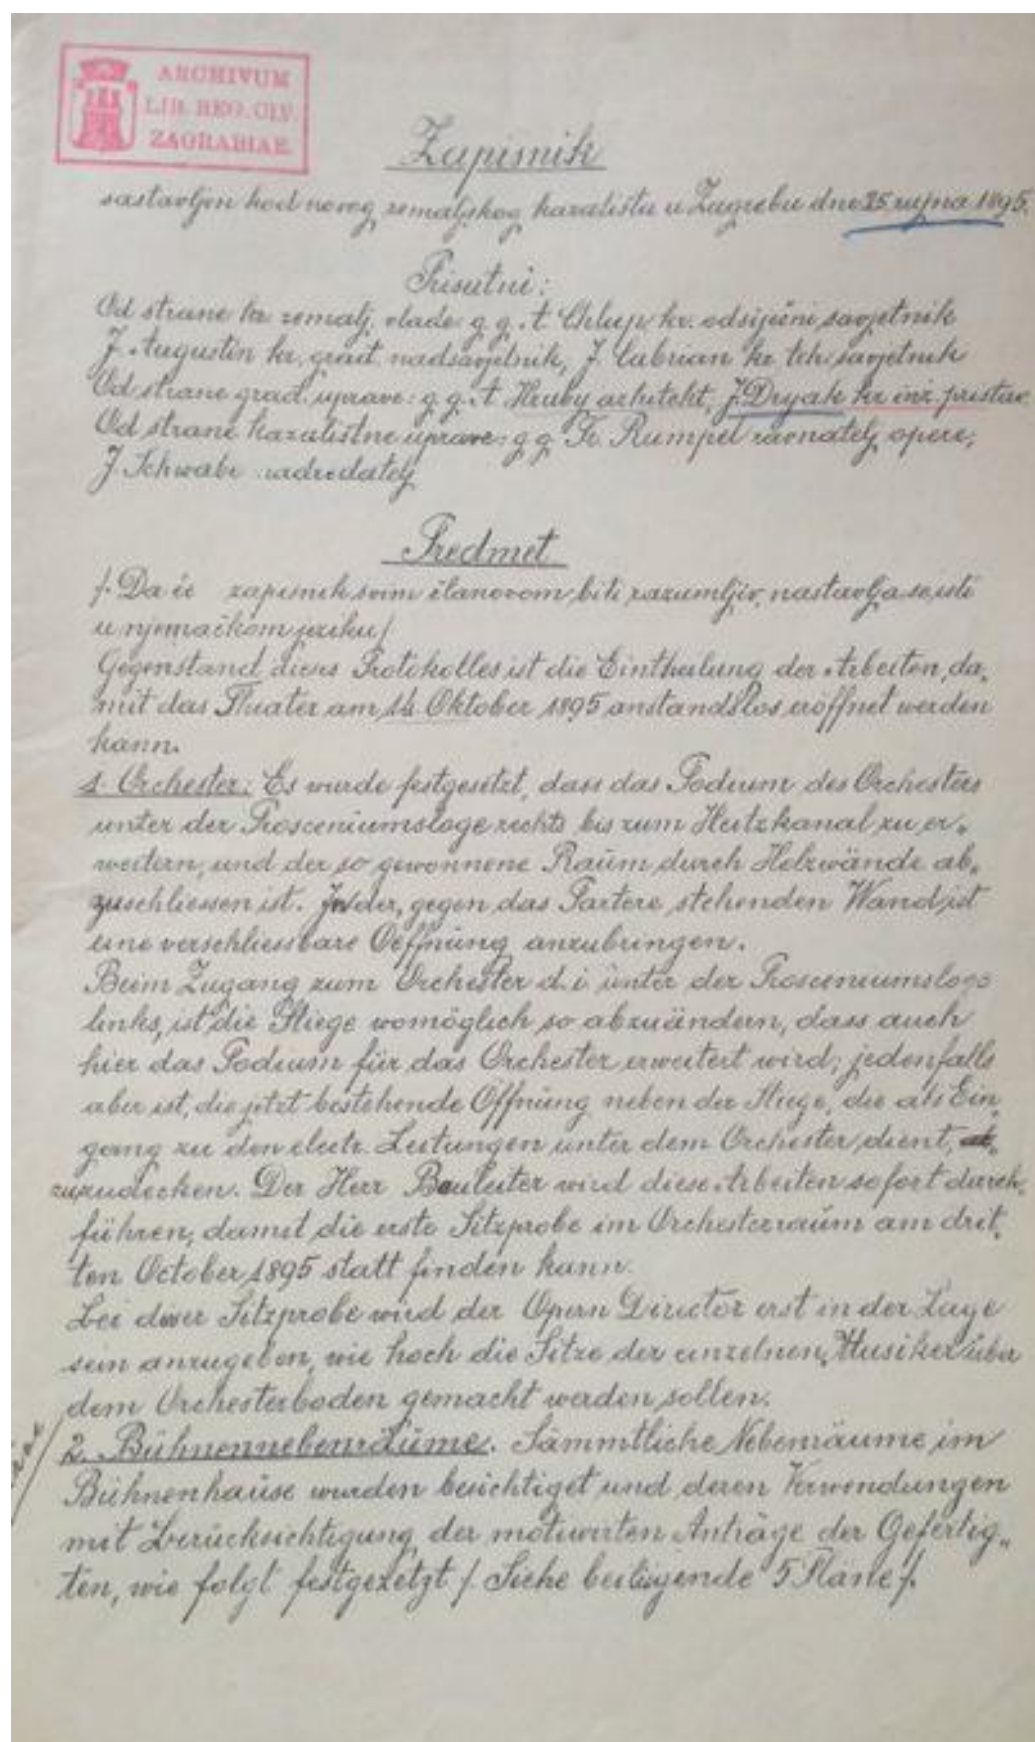 ARCHIVUM
LIB. REG. CIV.
ZAGRABIAE
Zapisnik
sastavljen kod novog zemaljskog kazališta u Zagrebu dne 25 rujna 1895.
Prisutni:
Od strane kr zemalj. vlade: g.g. A. Chlup kr. odsječni savjetnik
J. Augustin kr. grad. nadsavjetnik, J. Cabrian kr. tch. savjetnik
Od strane grad. uprave: g.g. A Hruby arhitekt, J. Dryak kr inž. pristav
Od strane kazalištne uprave: g.g. Fr. Rumpel ravnatelj opere,
J. Schwabe nadredatelj
Predmet
/. Da će zapisnik svim članovom biti razumljiv, nastavlja se isti
u njemačkom jeziku/
Gegenstand dieses Protokolles ist die Eintheilung der Arbeiten, da„
mit das Theater am 14 Oktober 1895 anstandslos eröffnet werden
kann.
1. Orchester: Es wurde festgesetzt, dass das Podium des Orchesters
unter der Prosceniumsloge rechts bis zum Heitzkanal zu er„
weitern, und der so gewonnene Raum durch Holzwände ab„
zuschliessen ist. In der, gegen das Partere stehenden Wand ist
eine verschliessbare Oeffnung anzubringen.
Beim Zugang zum Orchester d. i. unter der Prosceniumsloge
links, ist die Stiege womöglich so abzuändern, dass auch
hier das Podium für das Orchester erweitert wird; jedenfalls
aber ist, die jetzt bestehende Öffnung neben der Stiege, die als Ein„
gang zu den electr. Leitungen unter dem Orchester dient,
zuzudecken. Der Herr Bauleiter wird diese Arbeiten sofort durch„
führen, damit die erste Sitzprobe im Orchesterraum am drit„
ten October 1895 statt finden kann.
Bei dieser Sitzprobe wird der Opern Director erst in der Lage
sein anzugeben, wie hoch die Sitze der einzelnen Musiker über
dem Orchesterboden gemacht werden sollen.
2. Bühnennebenräume. Sämmtliche Nebenräume im
Bühnenhause wurden besichtiget und deren Verwendungen
mit Berücksichtigung der motivirten Anträge der Gefertig„
ten, wie folgt festgesetzt /. Siehe beiliegende 5 Pläne /.